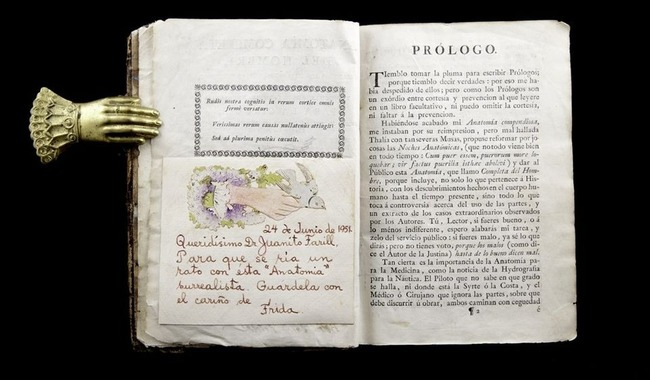 Rudis nostra cognitio in rerum cortice omnis
fermé versatur:
Verissimas rerum causas nullatenus attingit:
Sed ad plurima penitus cæcutit.
24 de Junio de 1951.
Queridísimo Dr Juanito Farill,
Para que se ría un
rato con esta "Anatomía"
surrealista. Guardela con
el cariño de
Frida.
PRÓLOGO.
Tiemblo tomar la pluma para escribir Prólogos;
porque tiemblo decir verdades: por eso me ha-
bia despedido de ellos; pero como los Prólogos son
un exórdio entre cortesía y prevencion al que leyere
un libro facultativo, ni puedo omitir la cortesía,
ni faltar á la prevencion.
Habiéndose acabado mi Anatomía compendiosa,
me instaban por su reimpresion, pero mal hallada
Thalía con tan severas Musas, propuse reformar por jo-
cosas las Noches Anatómicas, (que no todo viene bien
en todo tiempo: Cum puer essem, puerorum more lo-
quebar; vir factus puerilia isthæc abolevi) y dar al
Público esta Anatomía, que llamo Completa del Hom-
bre, porque incluye, no solo lo que pertenece á His-
toria, con los descubrimientos hechos en el cuerpo huma-
no hasta el tiempo presente, sino todo lo que
toca á controversia acerca del uso de las partes, y
un extracto de los casos extraordinarios observados
por los Autores. Tú, Lector, si fueres bueno, ó á
lo ménos indiferente, espero alabarás mi tarea, y
zelo del servicio público: si fueres malo, ya sé lo que
dirás; pero no tienes voto, porque los malos (como di-
ce el Autor de la Justina) hasta de lo bueno dicen mal.
Tan cierta es la importancia de la Anatomía pa-
ra la Medicina, como la noticia de la Hydrografía
para la Náutica. El Piloto que no sabe en que grado
se halla, ni donde está la Syrte ó la Costa, y el
Médico ó Cirujano que ignora las partes, sobre que
debe discurrir ú obrar, ambos caminan con ceguedad
¶ 2 é